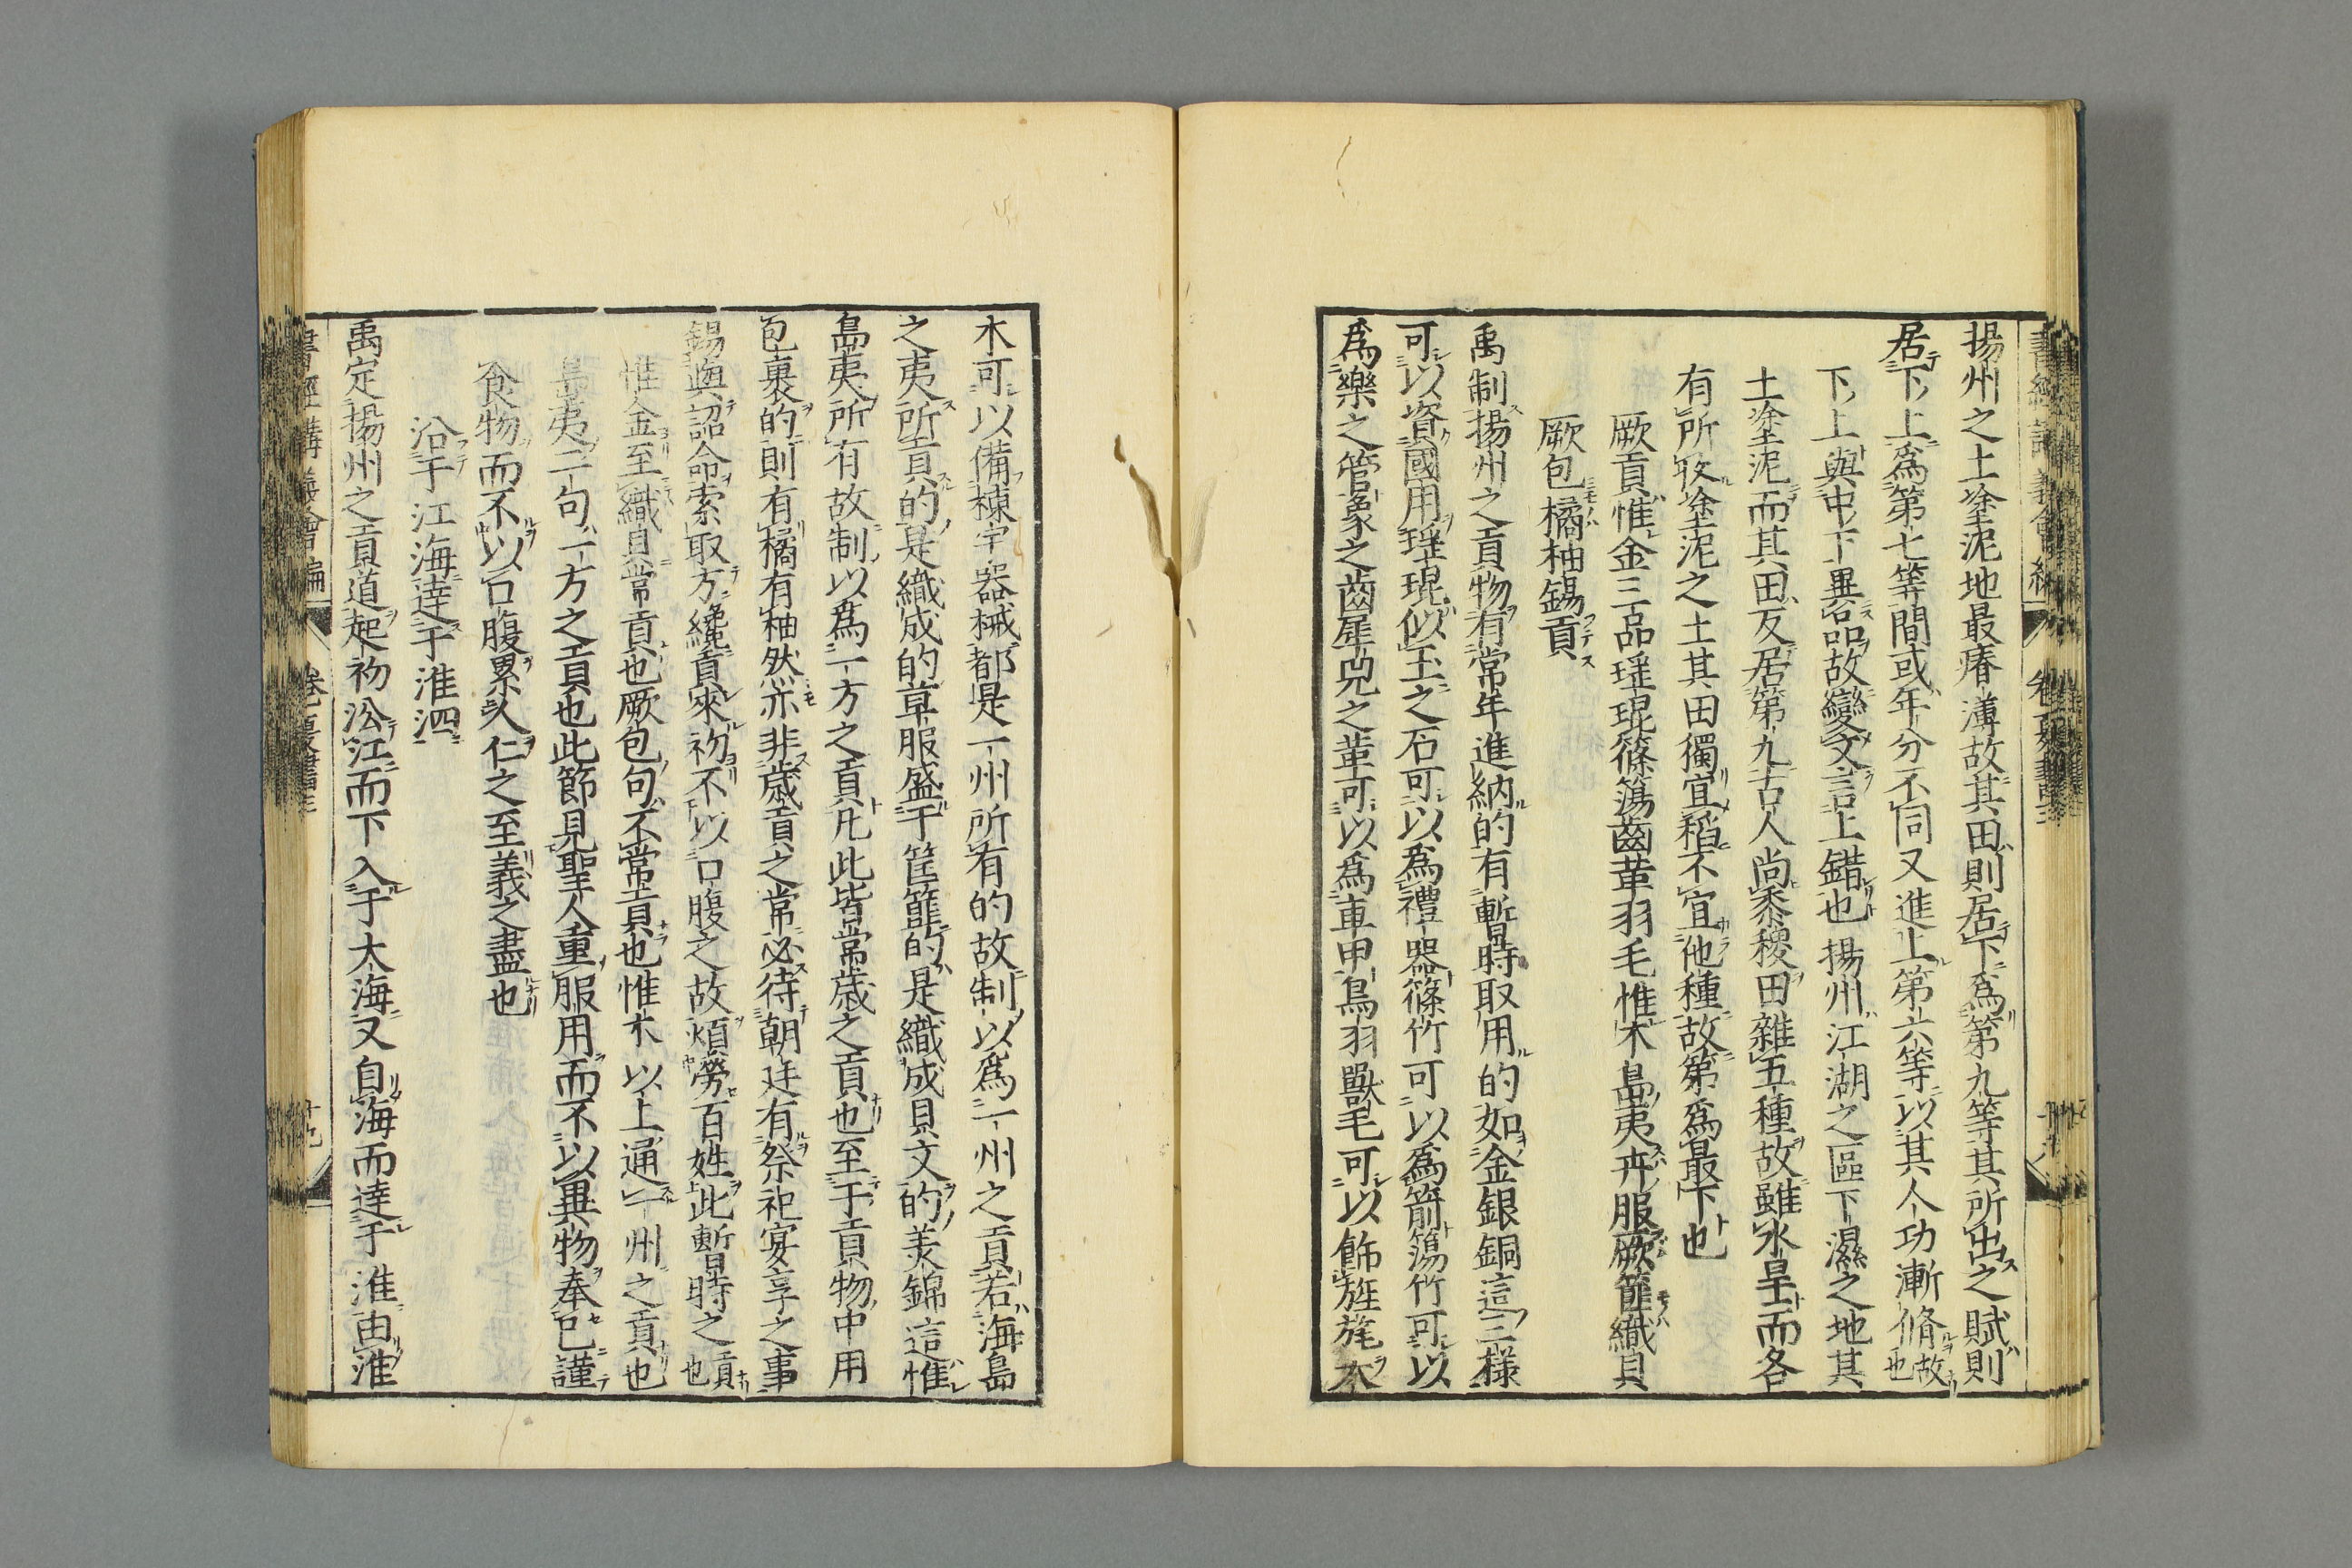 揚州之土塗泥地最瘠薄故其田則居下爲第九等其所出之賦則
居下上爲第七等間或年分不同又進上第六等以其人功漸脩故也
下上與中下異品故變文言上錯也揚州江湖之區下濕之地其
土塗泥而其田反居第九古人尚黍稷田雜五種故雖水旱而各
有所收塗泥之土其田獨宜稻不宜他種故第爲最下也
厥貢惟金三品瑤琨篠簜齒革羽毛惟木島夷卉服厥篚織貝
厥包橘柚錫貢
禹制揚州之貢物有常年進納的有暫時取用的如金銀銅這三樣
可以資國用瑤琨似玉之石可以爲禮器篠竹可以爲箭簜竹可以
爲樂之管象之齒犀兕之革可以爲車甲鳥羽獸毛可以飾旌旄衣
木可以備棟宇器械都是一州所有的故制以爲一州之貢若海島
之夷所貢的是織成的草服盛于筐篚的是織成貝文的美錦這惟
島夷所有故制以爲一方之貢凡此皆常歲之貢也至于貢物中用
包裹的則有橘有柚然亦非歲貢之常必待朝廷有祭祀宴享之事
錫與詔命索取方纔貢來初不以口腹之故煩勞百姓此暫時之貢也
惟金至織貝常貢也厥包句不常貢也惟木以上通一州之貢也
島夷二句一方之貢也此節見聖人重服用而不以異物奉己謹
食物而不以口腹累人仁之至義之盡也
沿于江海達于淮泗
禹定揚州之貢道起初沿江而下入于大海又自海而達于淮由淮
書經講義會編 卷 夏書三 十九